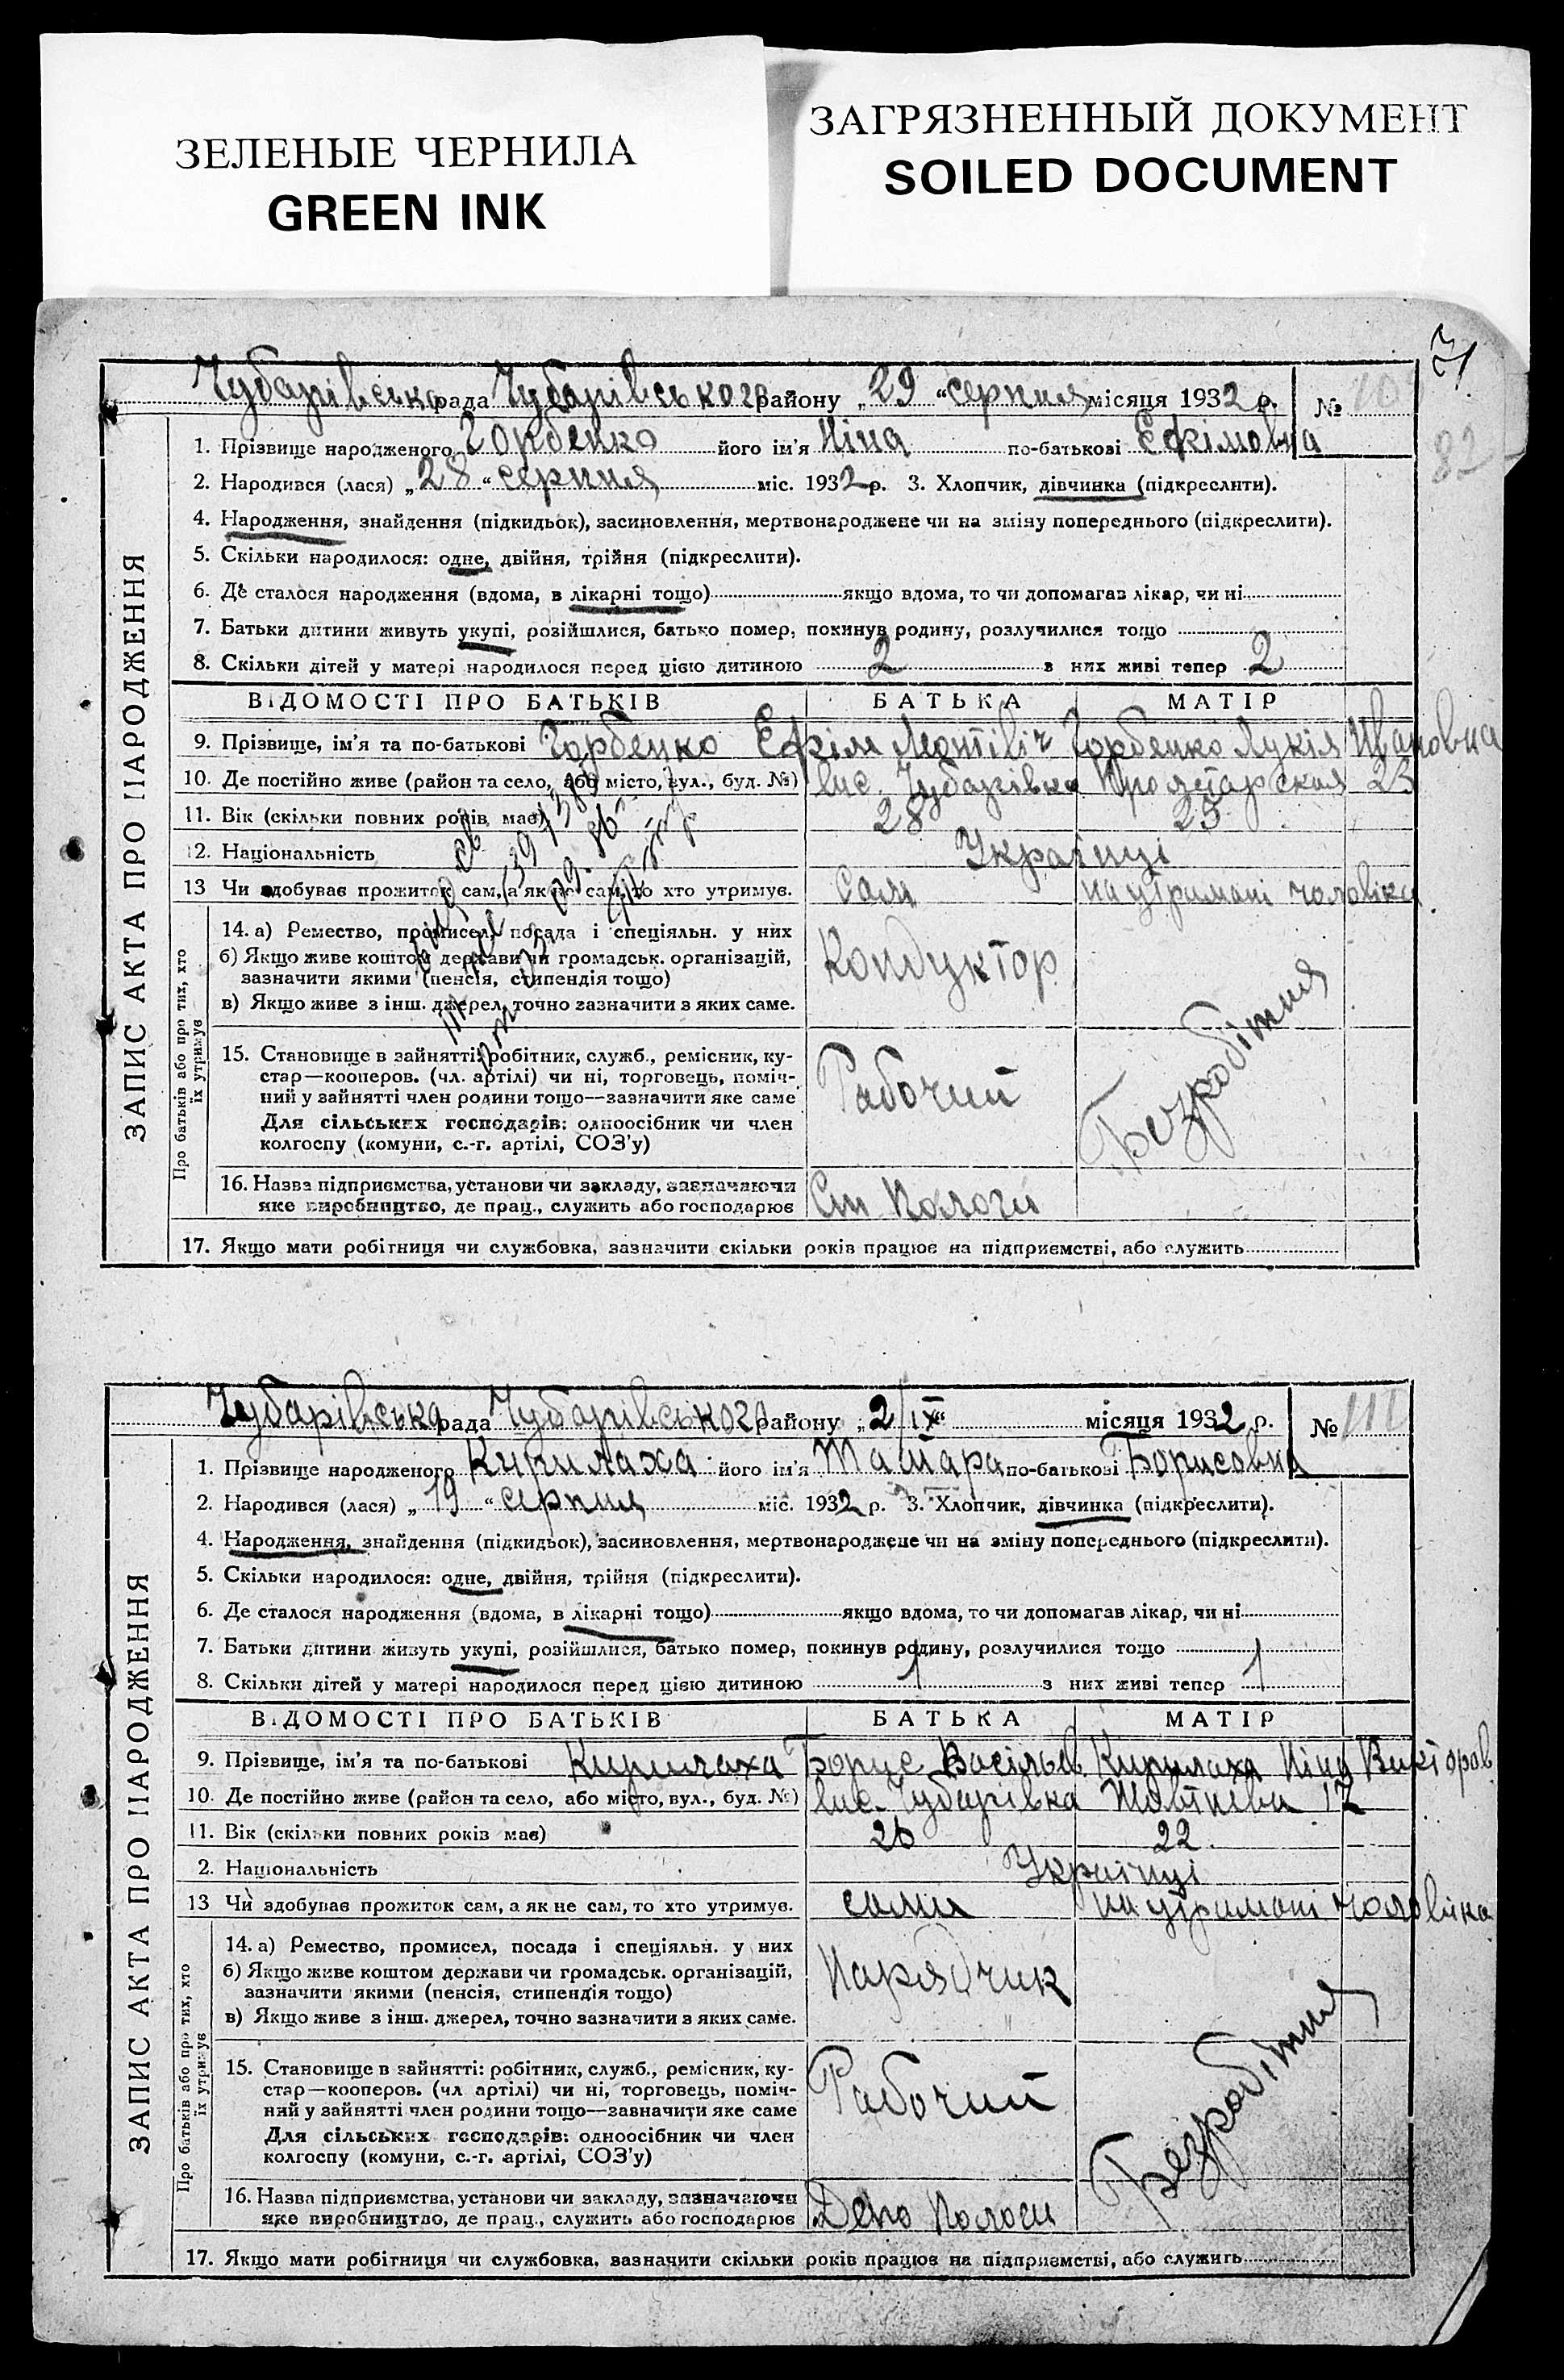 ЗЕЛЕНЫЕ ЧЕРНИЛА
GREEN INK
ЗАГРЯЗНЕННЫЙ ДОКУМЕНТ
SOILED DOCUMENT
31
82
Чубарівська рада Чубарівського району „29“ серпня місяця 1932 р. №
ЗАПИС АКТА ПРО НАРОДЖЕННЯ
1. Прізвище народженого Горбенко його ім'я Ніна по-батькові Єфімовна
2. Народився (лася) „28“ серпня міс. 1932 р. 3. Хлопчик, дівчинка (підкреслити).
4. Народження, знайдення (підкидьок), засиновлення, мертвонароджене чи на зміну попереднього (підкреслити).
5. Скільки народилося: одне, двійня, трійня (підкреслити).
6. Де сталося народження (вдома, в лікарні тощо) якщо вдома, то чи допомагав лікар, чи ні
7. Батьки дитини живуть укупі, розійшлися, батько помер, покинув родину, розлучилися тощо
8. Скільки дітей у матері народилося перед цією дитиною 2 з них живі тепер 2
ВІДОМОСТІ ПРО БАТЬКІВ БАТЬКА МАТІР
9. Прізвище, ім'я та по-батькові Горбенко Єфім Горбенко Лукія Ивановна
10. Де постійно живе (район та село, або місто, вул., буд. №) вис. Чубарівка Пролетарская 23
11. Вік (скільки повних років має) 28 25
12. Національність Українці
13 Чи здобуває прожиток сам, а як не сам, то хто утримує. Сам на утримані чоловіка
Про батьків або про тих, хто їх утримує
14. а) Ремество, промисел, посада і спеціяльн. у них Кондуктор
б) Якщо живе коштом держави чи громадськ. організацій,
зазначити якими (пенсія, стипендія тощо)
в) Якщо живе з інш. джерел, точно зазначити з яких саме.
15. Становище в зайнятті: робітник, служб., ремісник, ку-
стар—кооперов. (чл. артілі) чи ні, торговець, поміч-
ний у зайнятті член родини тощо—зазначити яке саме Рабочий Безробітня
Для сільських господарів: одноосібник чи член
колгоспу (комуни, с.-г. артілі, СОЗ'у)
16. Назва підприємства, установи чи закладу, зазначаючи
яке виробництво, де прац., служить або господарює Ст Пологи
17. Якщо мати робітниця чи службовка, зазначити скільки років працює на підприємстві, або служить
Чубарівська рада Чубарівського району „2/IX“ місяця 1932 р. № 111
ЗАПИС АКТА ПРО НАРОДЖЕННЯ
1. Прізвище народженого Кирилаха його ім'я Тамара по-батькові Борисовна
2. Народився (лася) „19“ серпня міс. 1932 р. 3. Хлопчик, дівчинка (підкреслити).
4. Народження, знайдення (підкидьок), засиновлення, мертвонароджене чи на зміну попереднього (підкреслити).
5. Скільки народилося: одне, двійня, трійня (підкреслити).
6. Де сталося народження (вдома, в лікарні тощо) якщо вдома, то чи допомагав лікар, чи ні
7. Батьки дитини живуть укупі, розійшлися, батько помер, покинув родину, розлучилися тощо
8. Скільки дітей у матері народилося перед цією дитиною 1 з них живі тепер 1
ВІДОМОСТІ ПРО БАТЬКІВ БАТЬКА МАТІР
9. Прізвище, ім'я та по-батькові Кирилаха Борис Васільов. Кирилаха Ніна Вікторов.
10. Де постійно живе (район та село, або місто, вул., буд. №) вис. Чубарівка Жовтнева 12
11. Вік (скільки повних років має) 26 22
2. Національність Українці
13 Чи здобуває прожиток сам, а як не сам, то хто утримує. сами на утримані чоловіка
Про батьків або про тих, хто їх утримує
14. а) Ремество, промисел, посада і спеціяльн. у них Нарядчик
б) Якщо живе коштом держави чи громадськ. організацій,
зазначити якими (пенсія, стипендія тощо)
в) Якщо живе з інш. джерел, точно зазначити з яких саме.
15. Становище в зайнятті: робітник, служб., ремісник, ку-
стар—кооперов. (чл артілі) чи ні, торговець, поміч-
ний у зайнятті член родини тощо—зазначити яке саме Рабочий Безробітня
Для сільських господарів: одноосібник чи член
колгоспу (комуни, с.-г. артілі, СОЗ'у)
16. Назва підприємства, установи чи закладу, зазначаючи
яке виробництво, де прац., служить або господарює Депо Пологи
17. Якщо мати робітниця чи службовка, зазначити скільки років працює на підприємстві, або служить